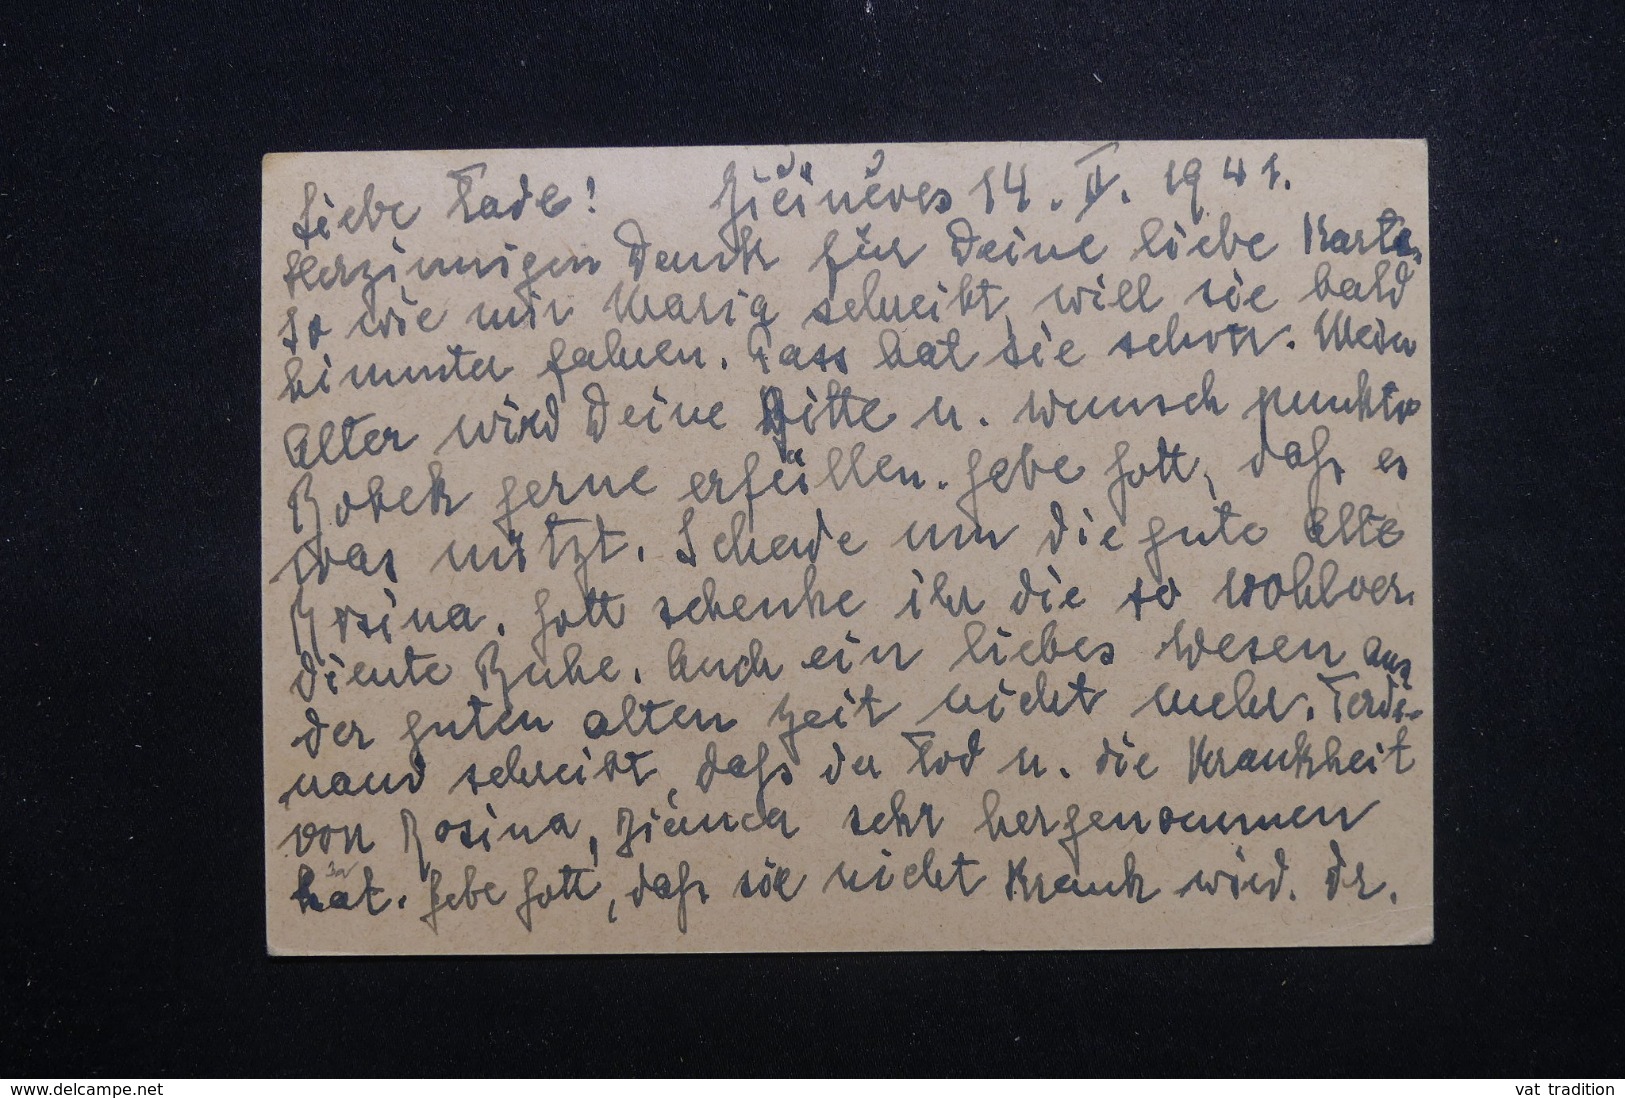 Liebe Fade! Jičiněves 14. II. 1941.
Herzinnigen Dank für Deine liebe Karte,
So wie mir Maria schreibt, will sie bald
hinunter fahren. Pass hat sie schon. Mein
Alter wird Deine Bitte u. Wunsch punkto
Bobek gerne erfüllen. Gebe Gott, daß es
was nützt. Schade um die gute alte
Rosina. Gott schenke ihr die so wohlver-
diente Ruhe. Auch ein liebes Wesen aus
der guten alten Zeit nicht mehr. Ferdi-
nand schreibt, daß der Tod u. die Krankheit
von Rosina, sehr hergenommen
hat. Gebe Gott, daß sie nicht Krank wird. Dr.
www.delcampe.net
vat tradition